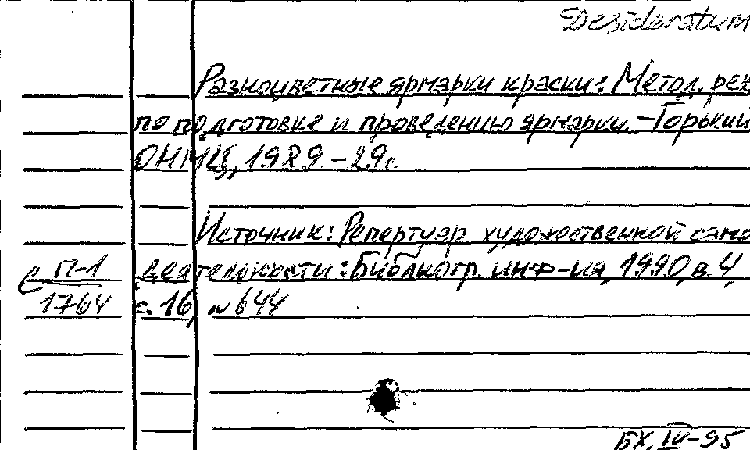 Desideratum
Разноцветные ярмарки краски: Метод. рек
по подготовке и проведению ярмарки. - Горький
ОНМЦ, 1989 - 29с.
Источник: Репертуар художественной само
деятельности: Библиогр. инф-ия, 1990, в. 4,
с П-1
1764
с. 16, №644
БХ, IV-95